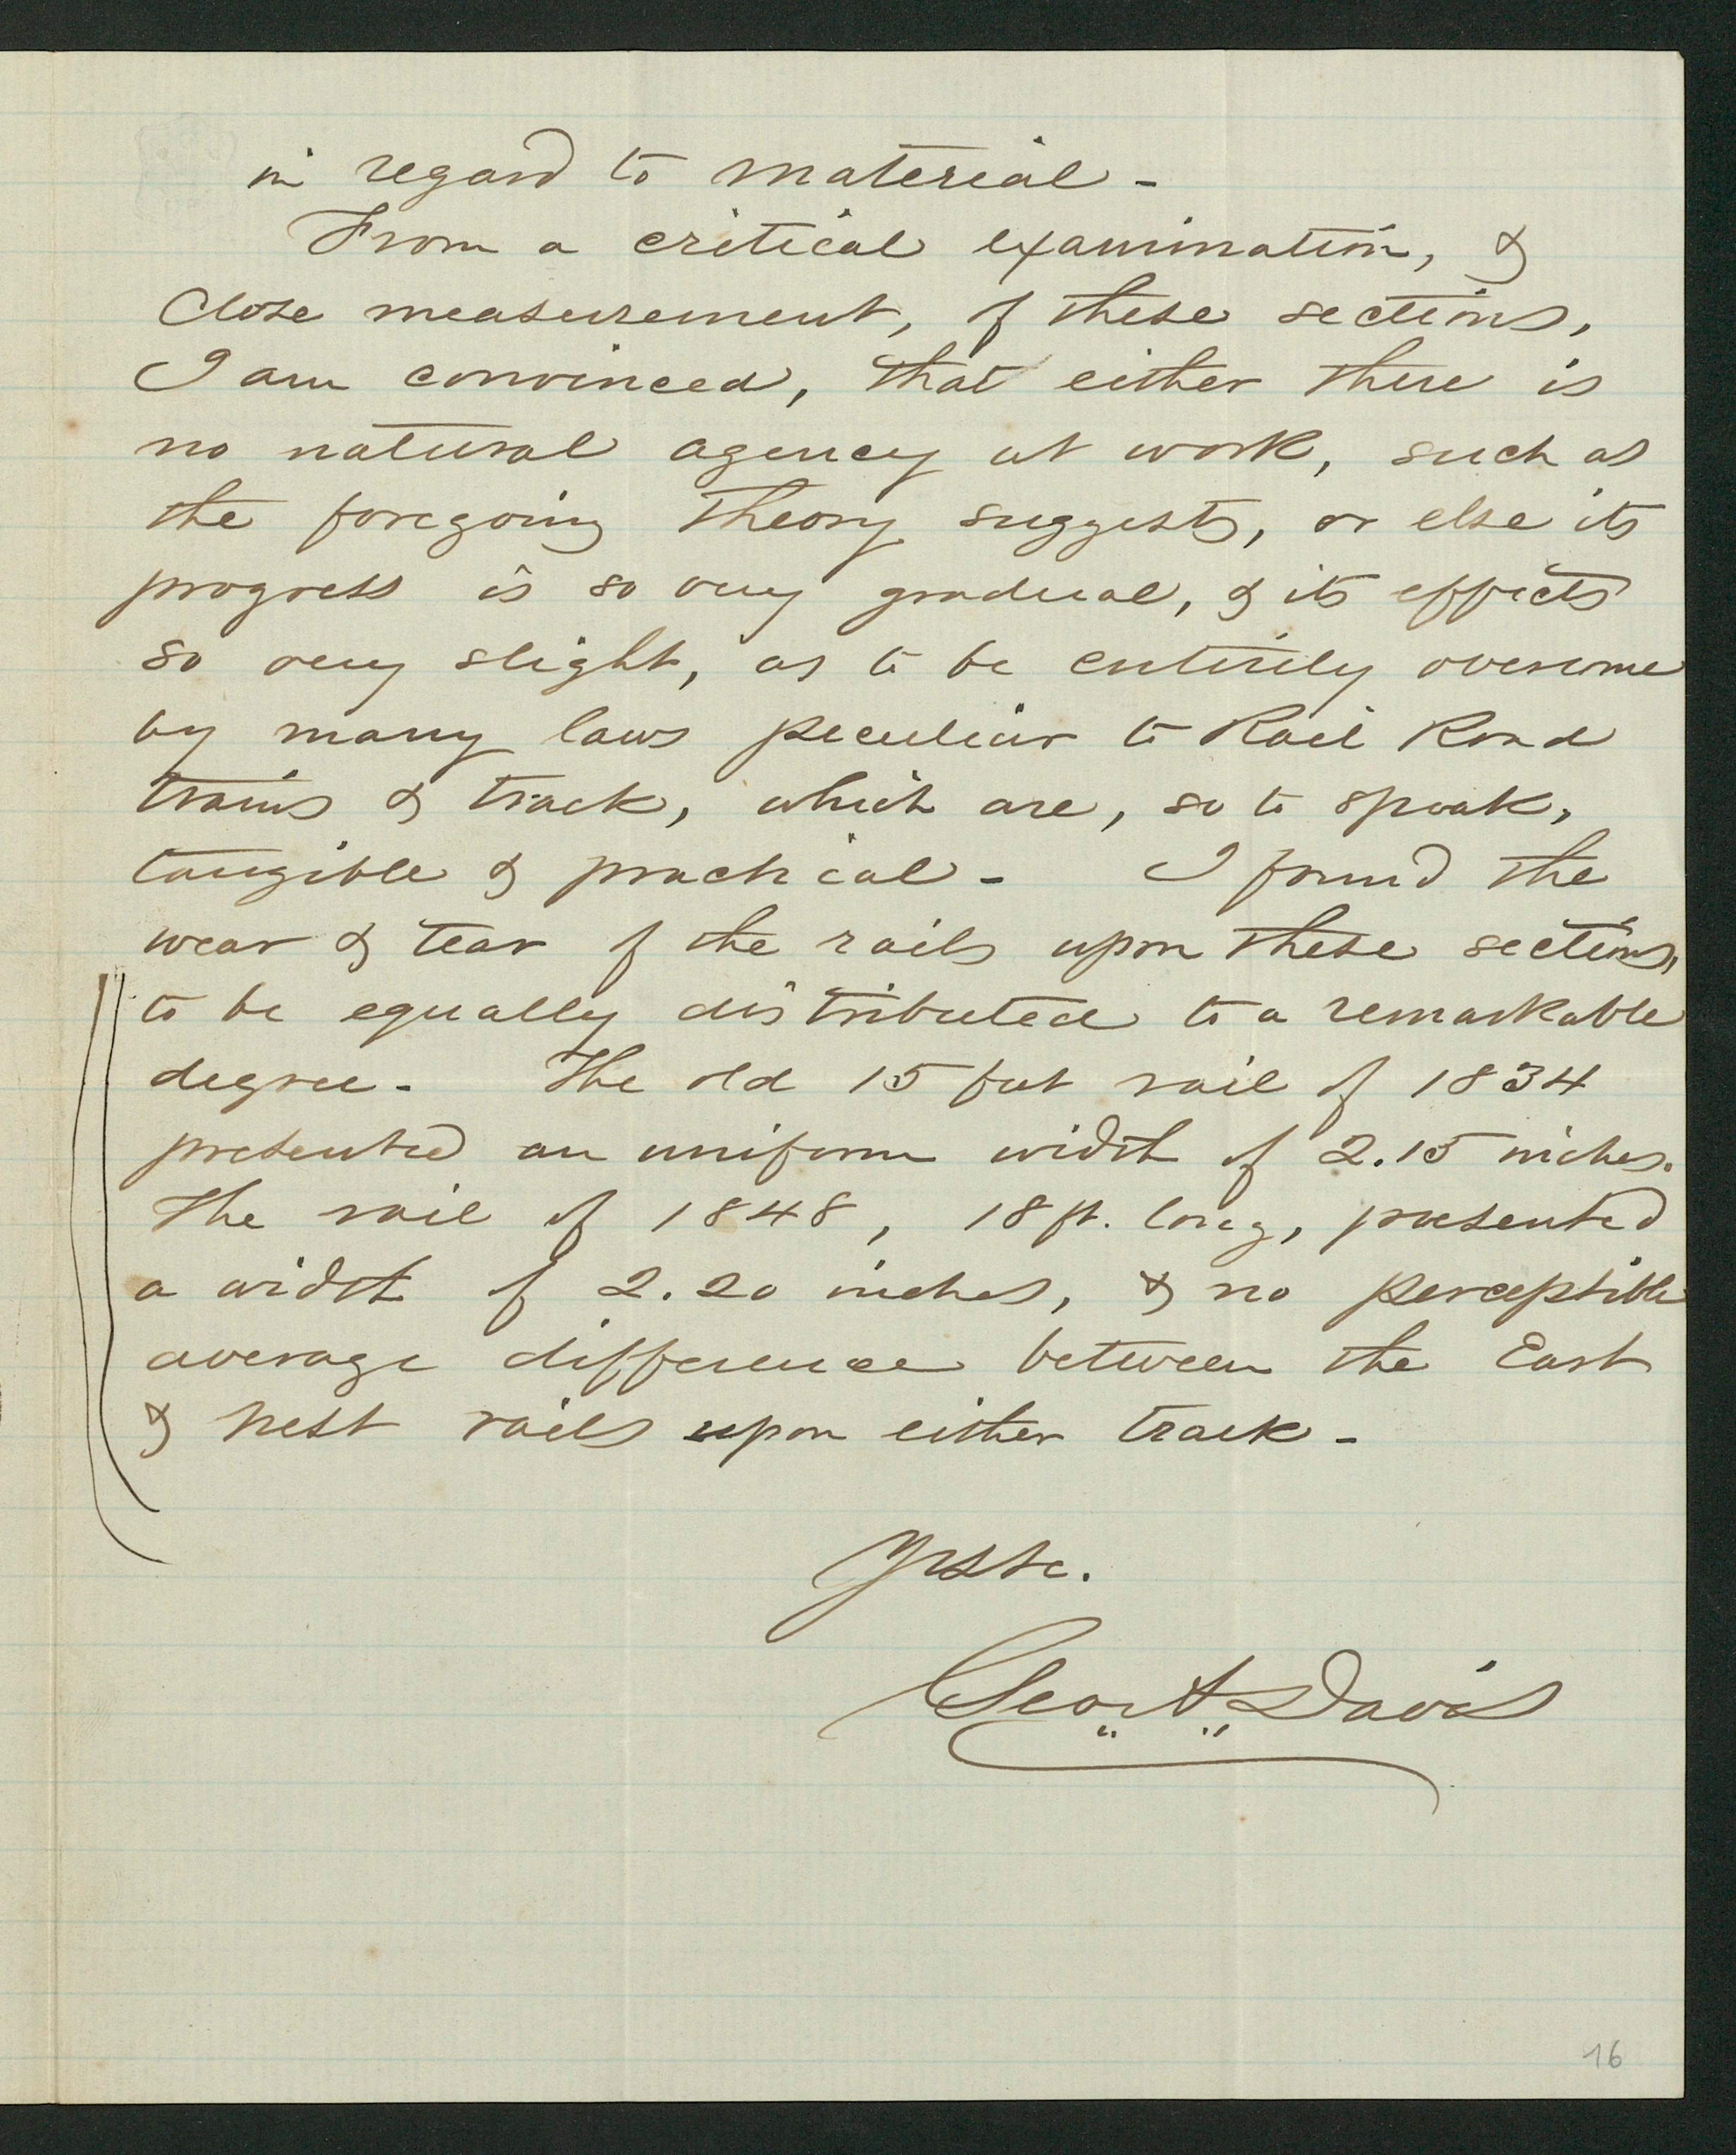 in regard to material -
From a critical examination, &
close measurement, of these sections,
I am convinced, that either there is
no natural agency at work, such as
the foregoing theory suggests, or else its
progress is so very gradual, & its effects
so very slight, as to be entirely overcome
by many laws peculiar to Rail Road
trains & track, which are, so to speak,
tangible & practical - I found the
wear & tear of the rails upon these sections,
to be equally distributed to a remarkable
degree - The old 15 feet rail of 1834
presented an uniform width of 2.15 inches.
The rail of 1848, 18 ft. long, presented
a width of 2.20 inches, & no perceptible
average difference between the East
& West rails upon either track -
Yrs &c.
Geo. A. Davis
16